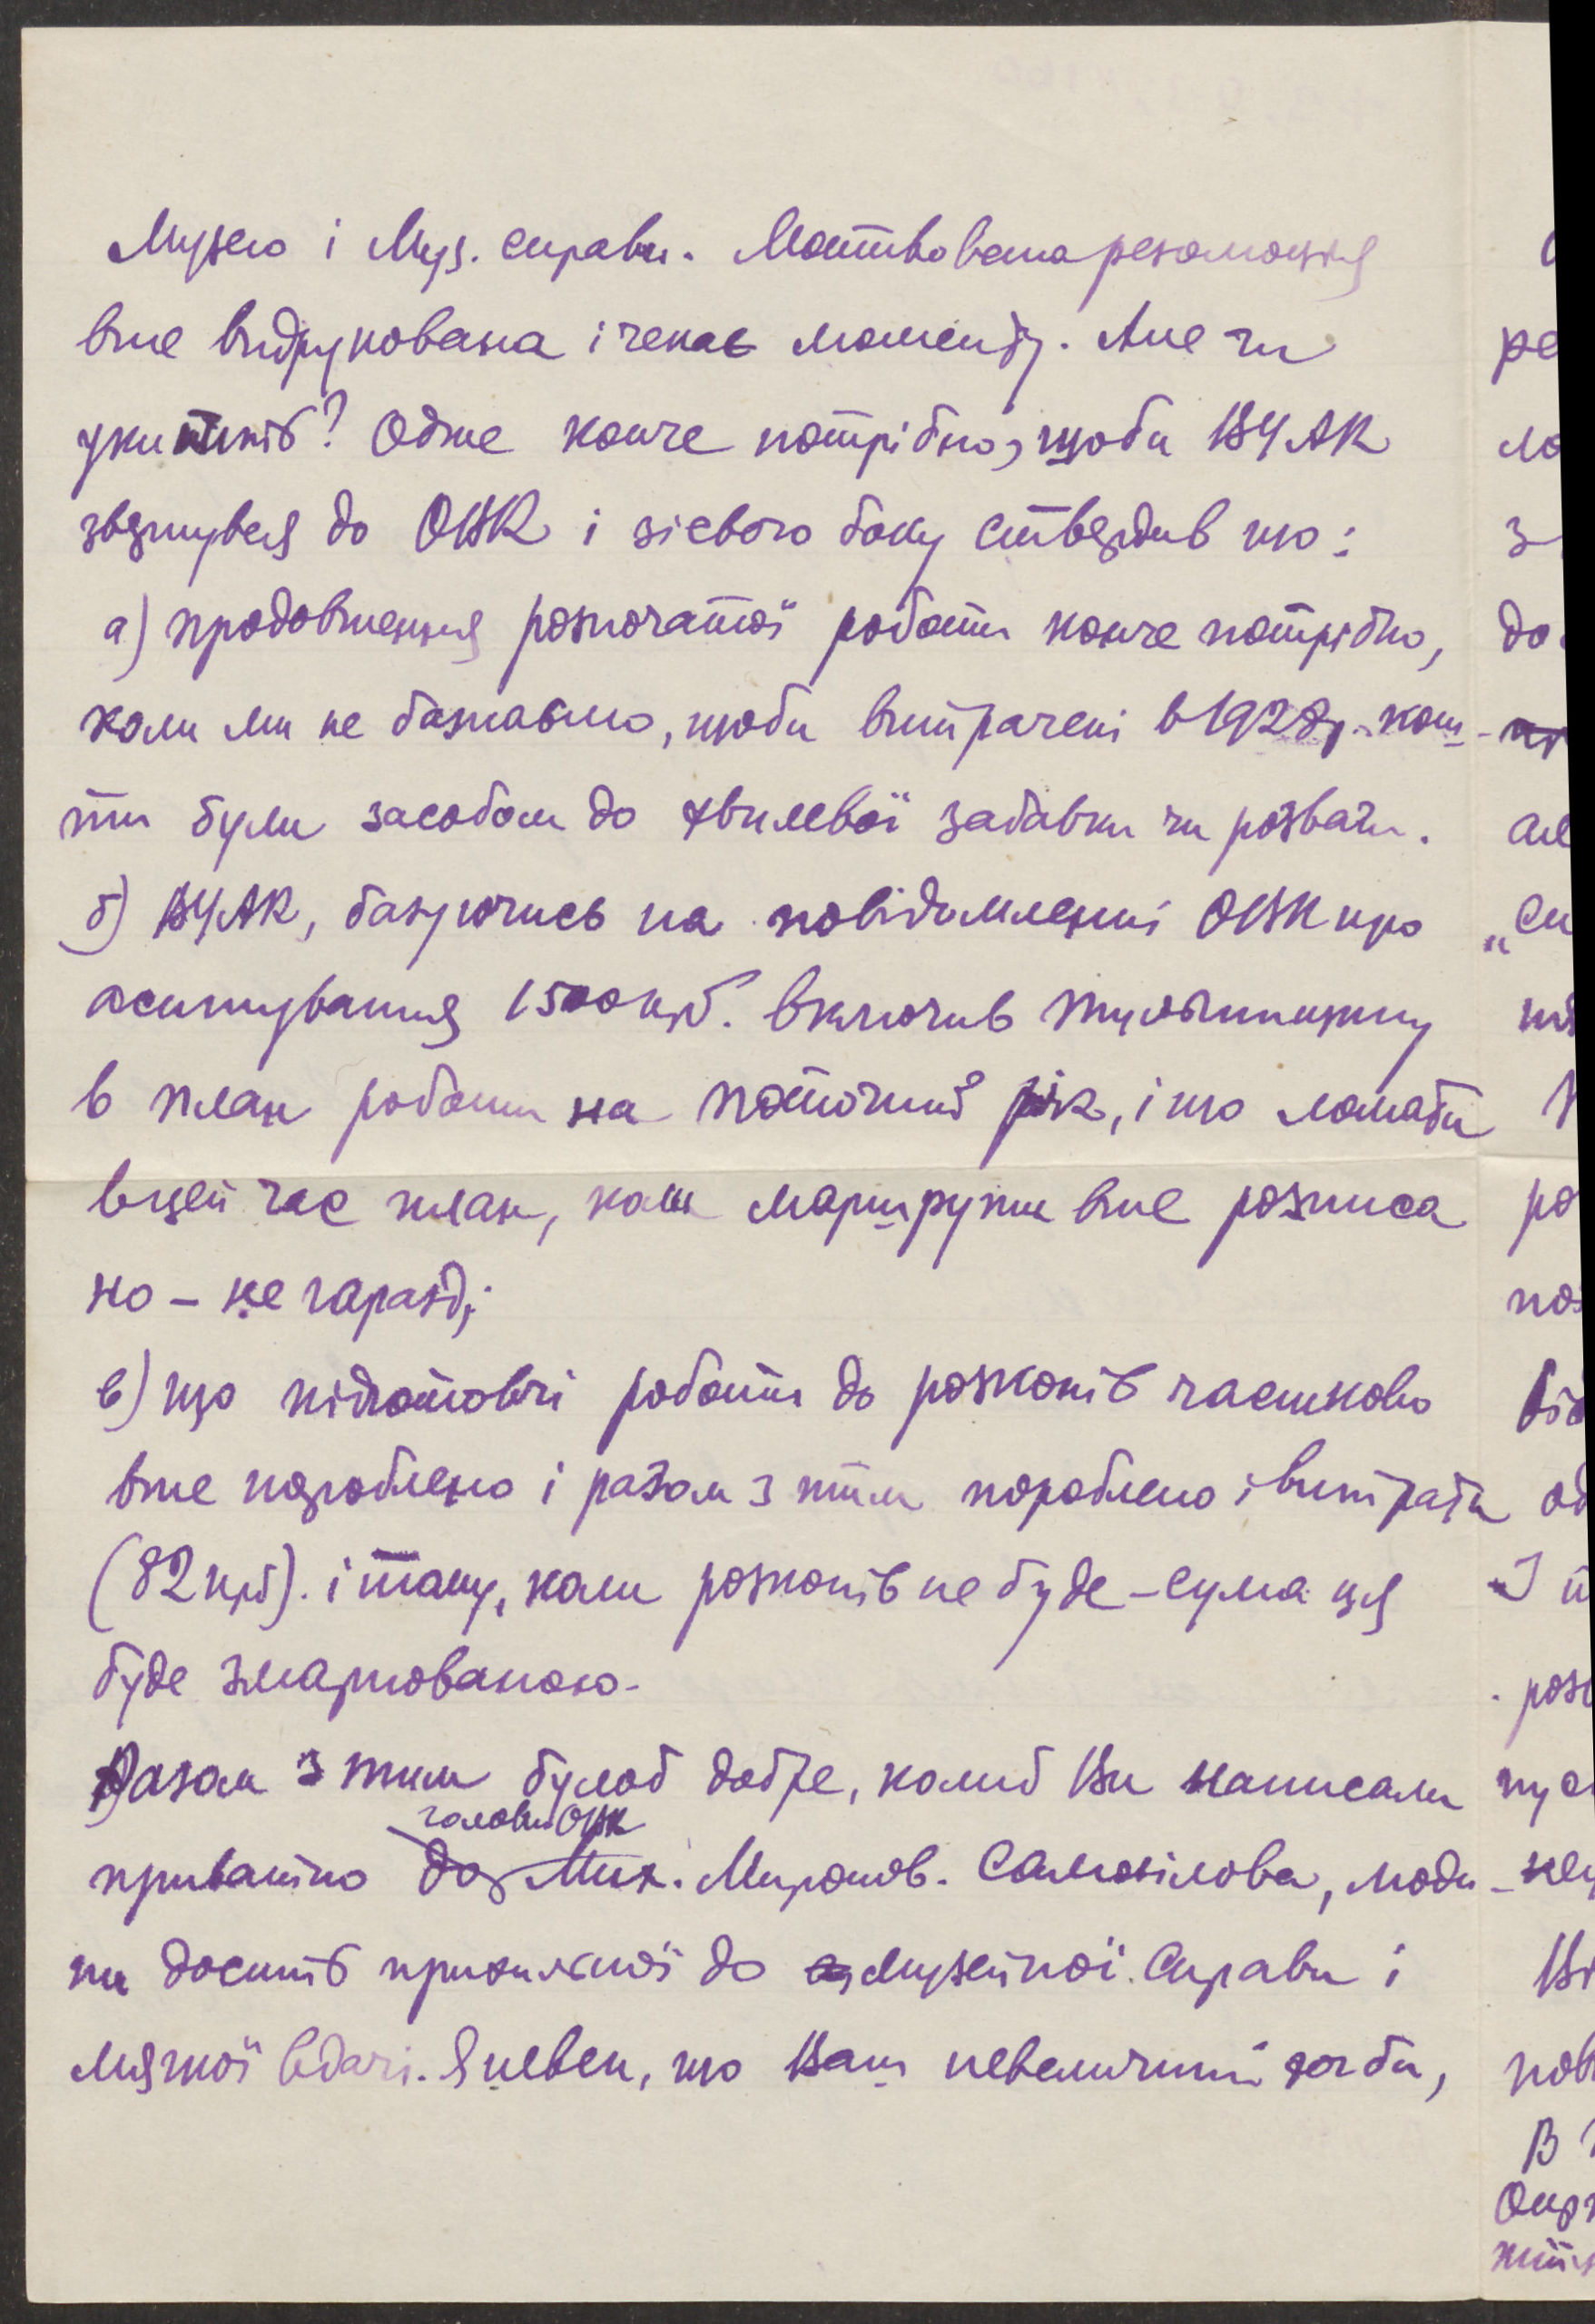 Музею і Муз. справи. Мотивована резолюція
вже видрукована і чекає моменту. Але чи
Одже конче потрібно, щоби ВУАК
звернувся до ОВК і зі свого боку ствердив що:
а) продовження розпочатої роботи конче потрібно,
коли ми не бажаємо, щоби витрачені в 1928 р. кош-
ти були засобом до хвилевої забавки чи розваги.
б) ВУАК, базуючись на повідомленні ОВК про
асигнування 1500 крб. включив Тульчинщину
в план роботи на поточний рік, і що ломати
в цей час план, коли маршрути вже розписа
но – не гаразд;
в) що підготовчі роботи до розкопів частково
вже пороблено і разом з тим пороблено і витрати
(82 крб). і тому, коли розкопів не буде – сума ця
буде змарнованою.
Разом з тим булоб добре, колиб Ви написали
голови ОВК
приватно до Мих. Миронов. Самойлова, люди-
ни досить прихильної до музейної справи і
мягкої вдачі. Я певен, що Ваш невеличкий хоч би,